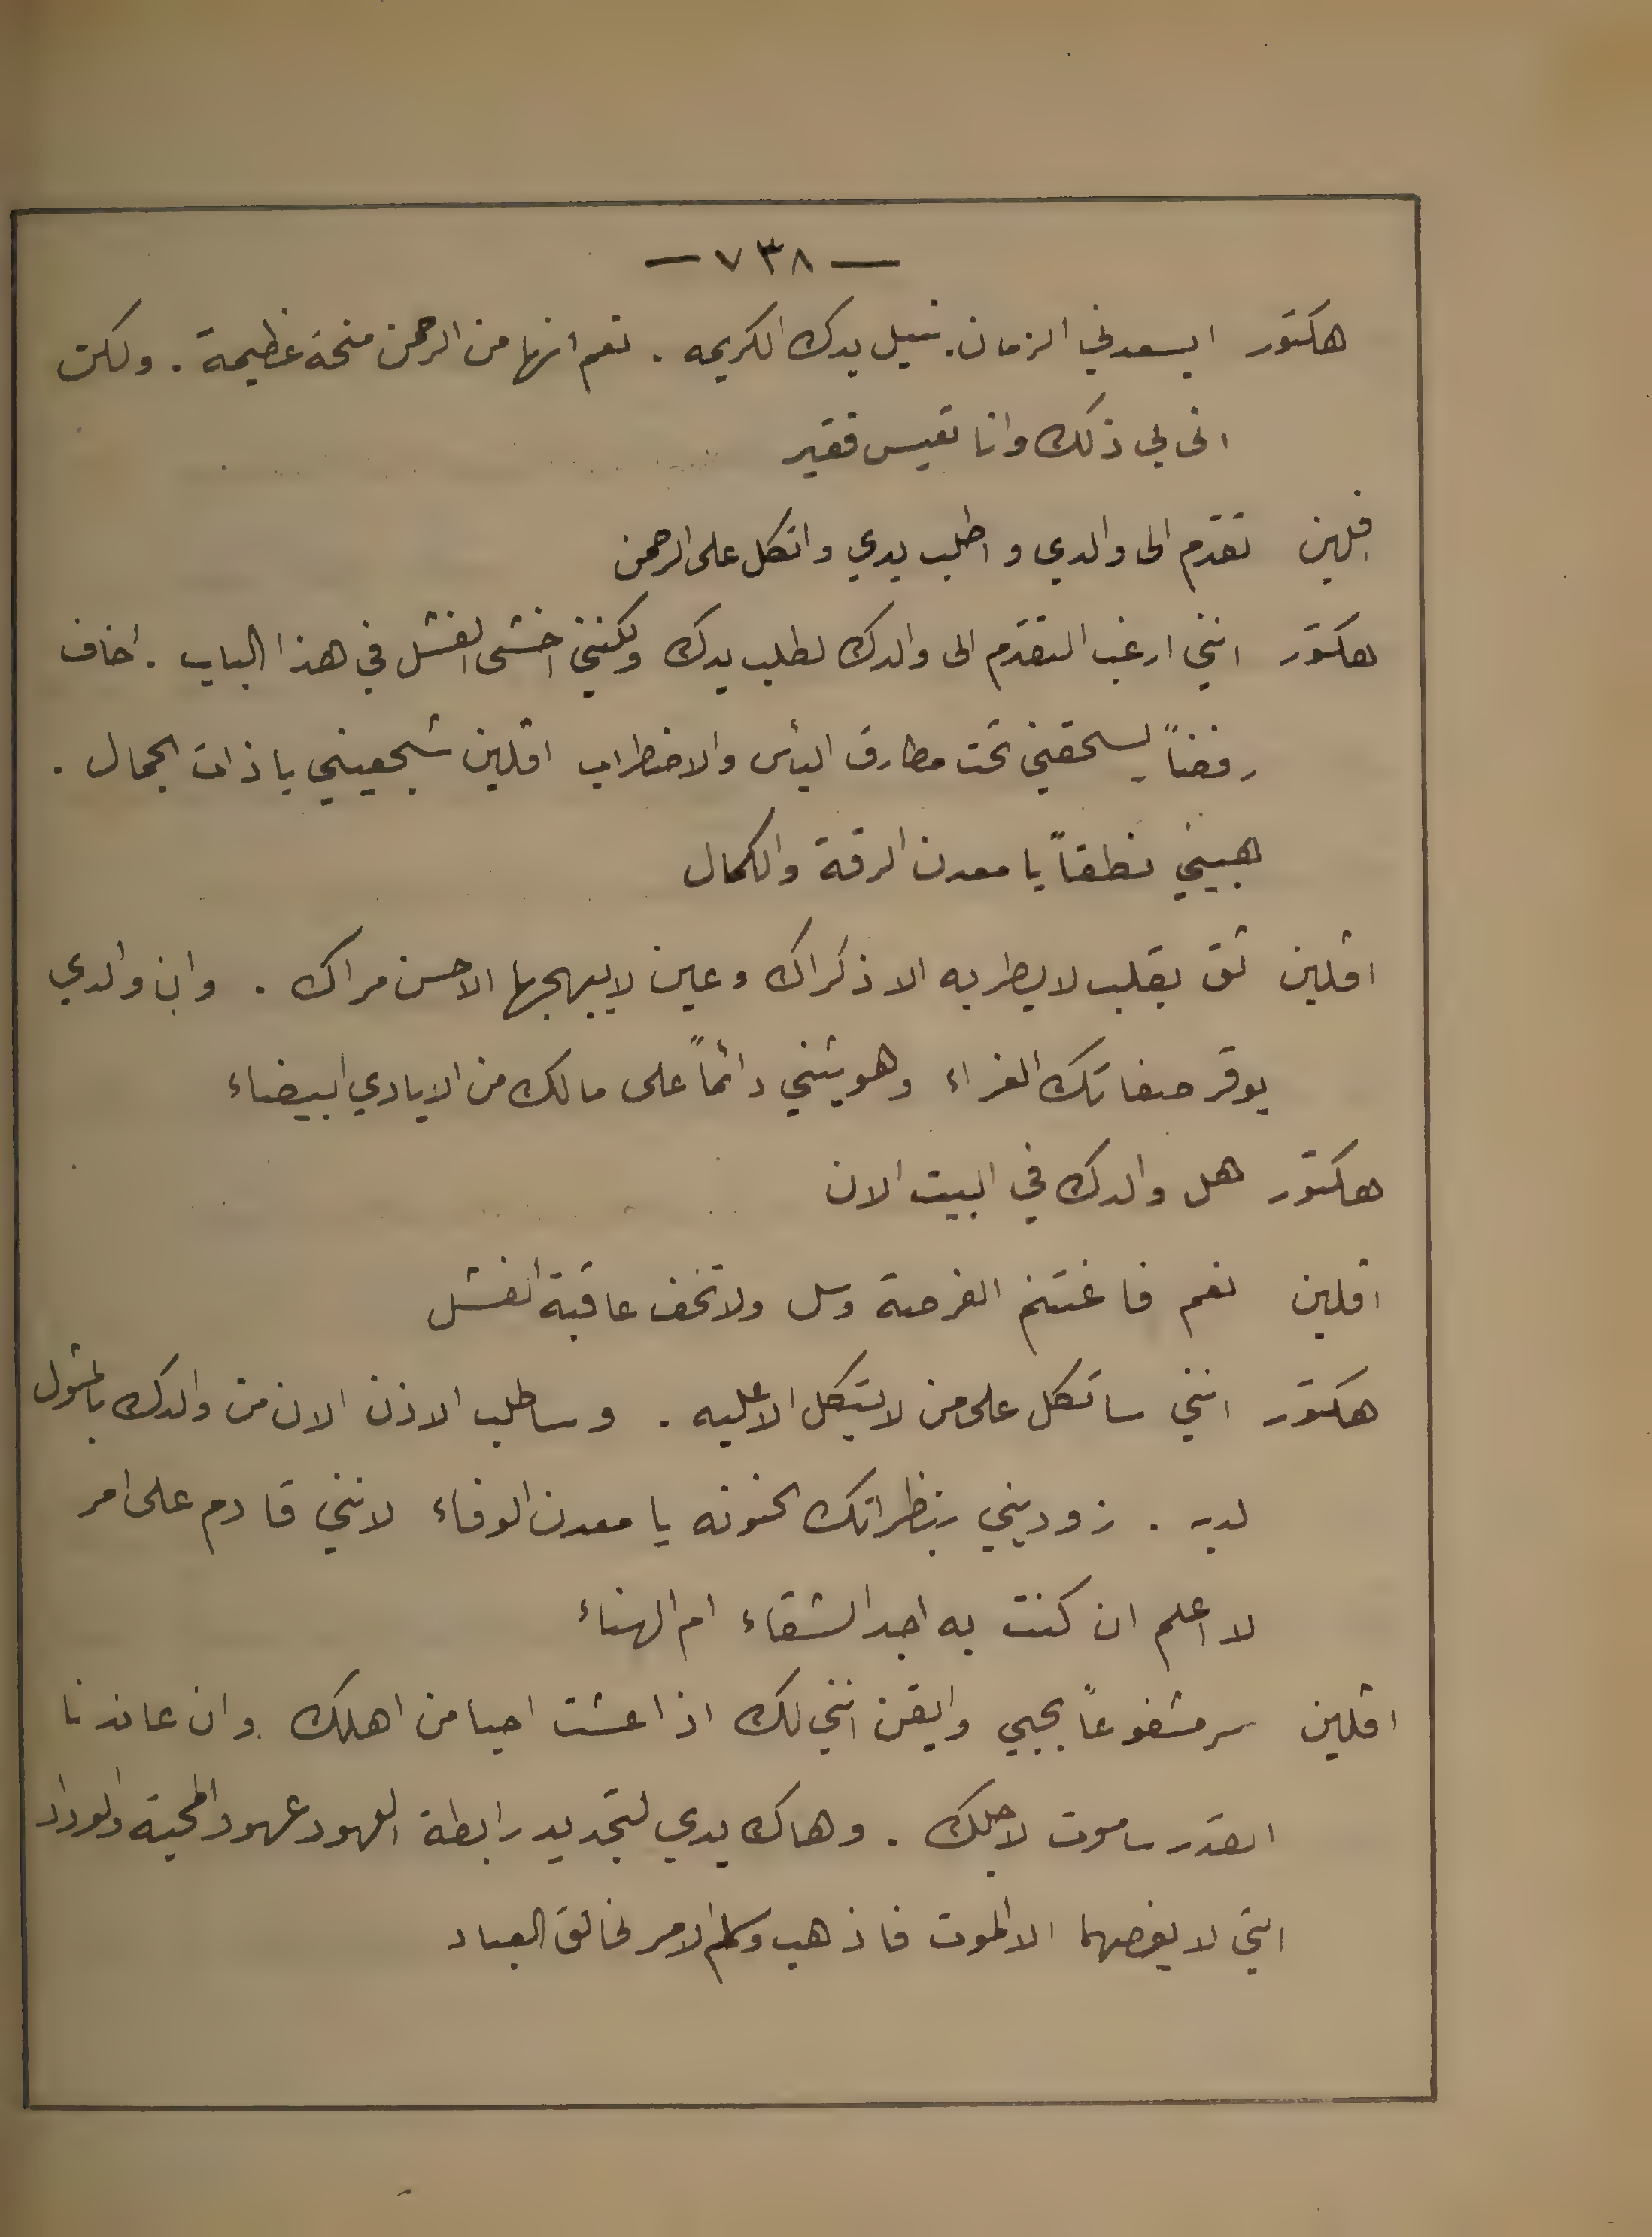 — ٧٣٨ —
هكتور ايسعدني الزمان بنيل يدك الكريمه . نعم انها من الرحمن منحة عظيمة . ولكن
انى لي ذلك وانا تعيس فقير
افلين تقدم الى والدي واطلب يدي واتكل على الرحمن
هكتور انني ارغب التقدم الى والدك لطلب يدك ولكنني اخشى الفشل في هذا الباب . اخاف
رفضاً يسحقني تحت مطارق اليأس والاضطراب افلين شجعيني يا ذات الجمال .
هبيني نطقاً يا معدن الرقة والكمال
افلين ثق بقلب لا يطربه الا ذكراك وعين لا يبهجها الا حسن مراك . وان والدي
يوقر صفاتك الغراء وهو يثني دائماً على مالك من الايادي البيضاء
هكتور هل والدك في البيت الان
افلين نعم فاغتنم الفرصة وسل ولا تخف عاقبة الفشل
هكتور انني ساتكل على من لا يتكل الا عليه . وساطلب الاذن الان من والدك بالمثول
لديه . زوديني بنظراتك الحنونه يا معدن الوفاء لانني قادم على امر
لا اعلم ان كنت به اجد الشقاء ام الهناء
افلين سر مشفوعاً بحبي وايقن انني لك اذا عشت احيا من اهلك . وان عاندنا
القدر ساموت لاجلك . وهاك يدي لتجديد رابطة العهود عهود المحبة والوداد
التي لا يفصمها الا الموت فاذهب وسلم الامر لخالق العباد